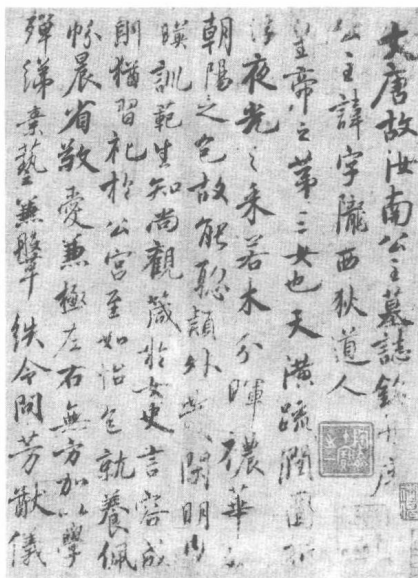 大唐故汝南公主墓誌銘并序
公主諱字隴西狄道人
皇帝之第三女也天潢疏潤圓折
浮夜光之采若木分暉穠華
朝陽之色故能聡穎外發閑明內
暎訓範生知尚觀箴於女史言容成
則猶習礼於公宮至如怡色就養佩
帉晨省敬愛兼極左右無方加以學
殫綈素藝兼鞶紩令問芳猷儀